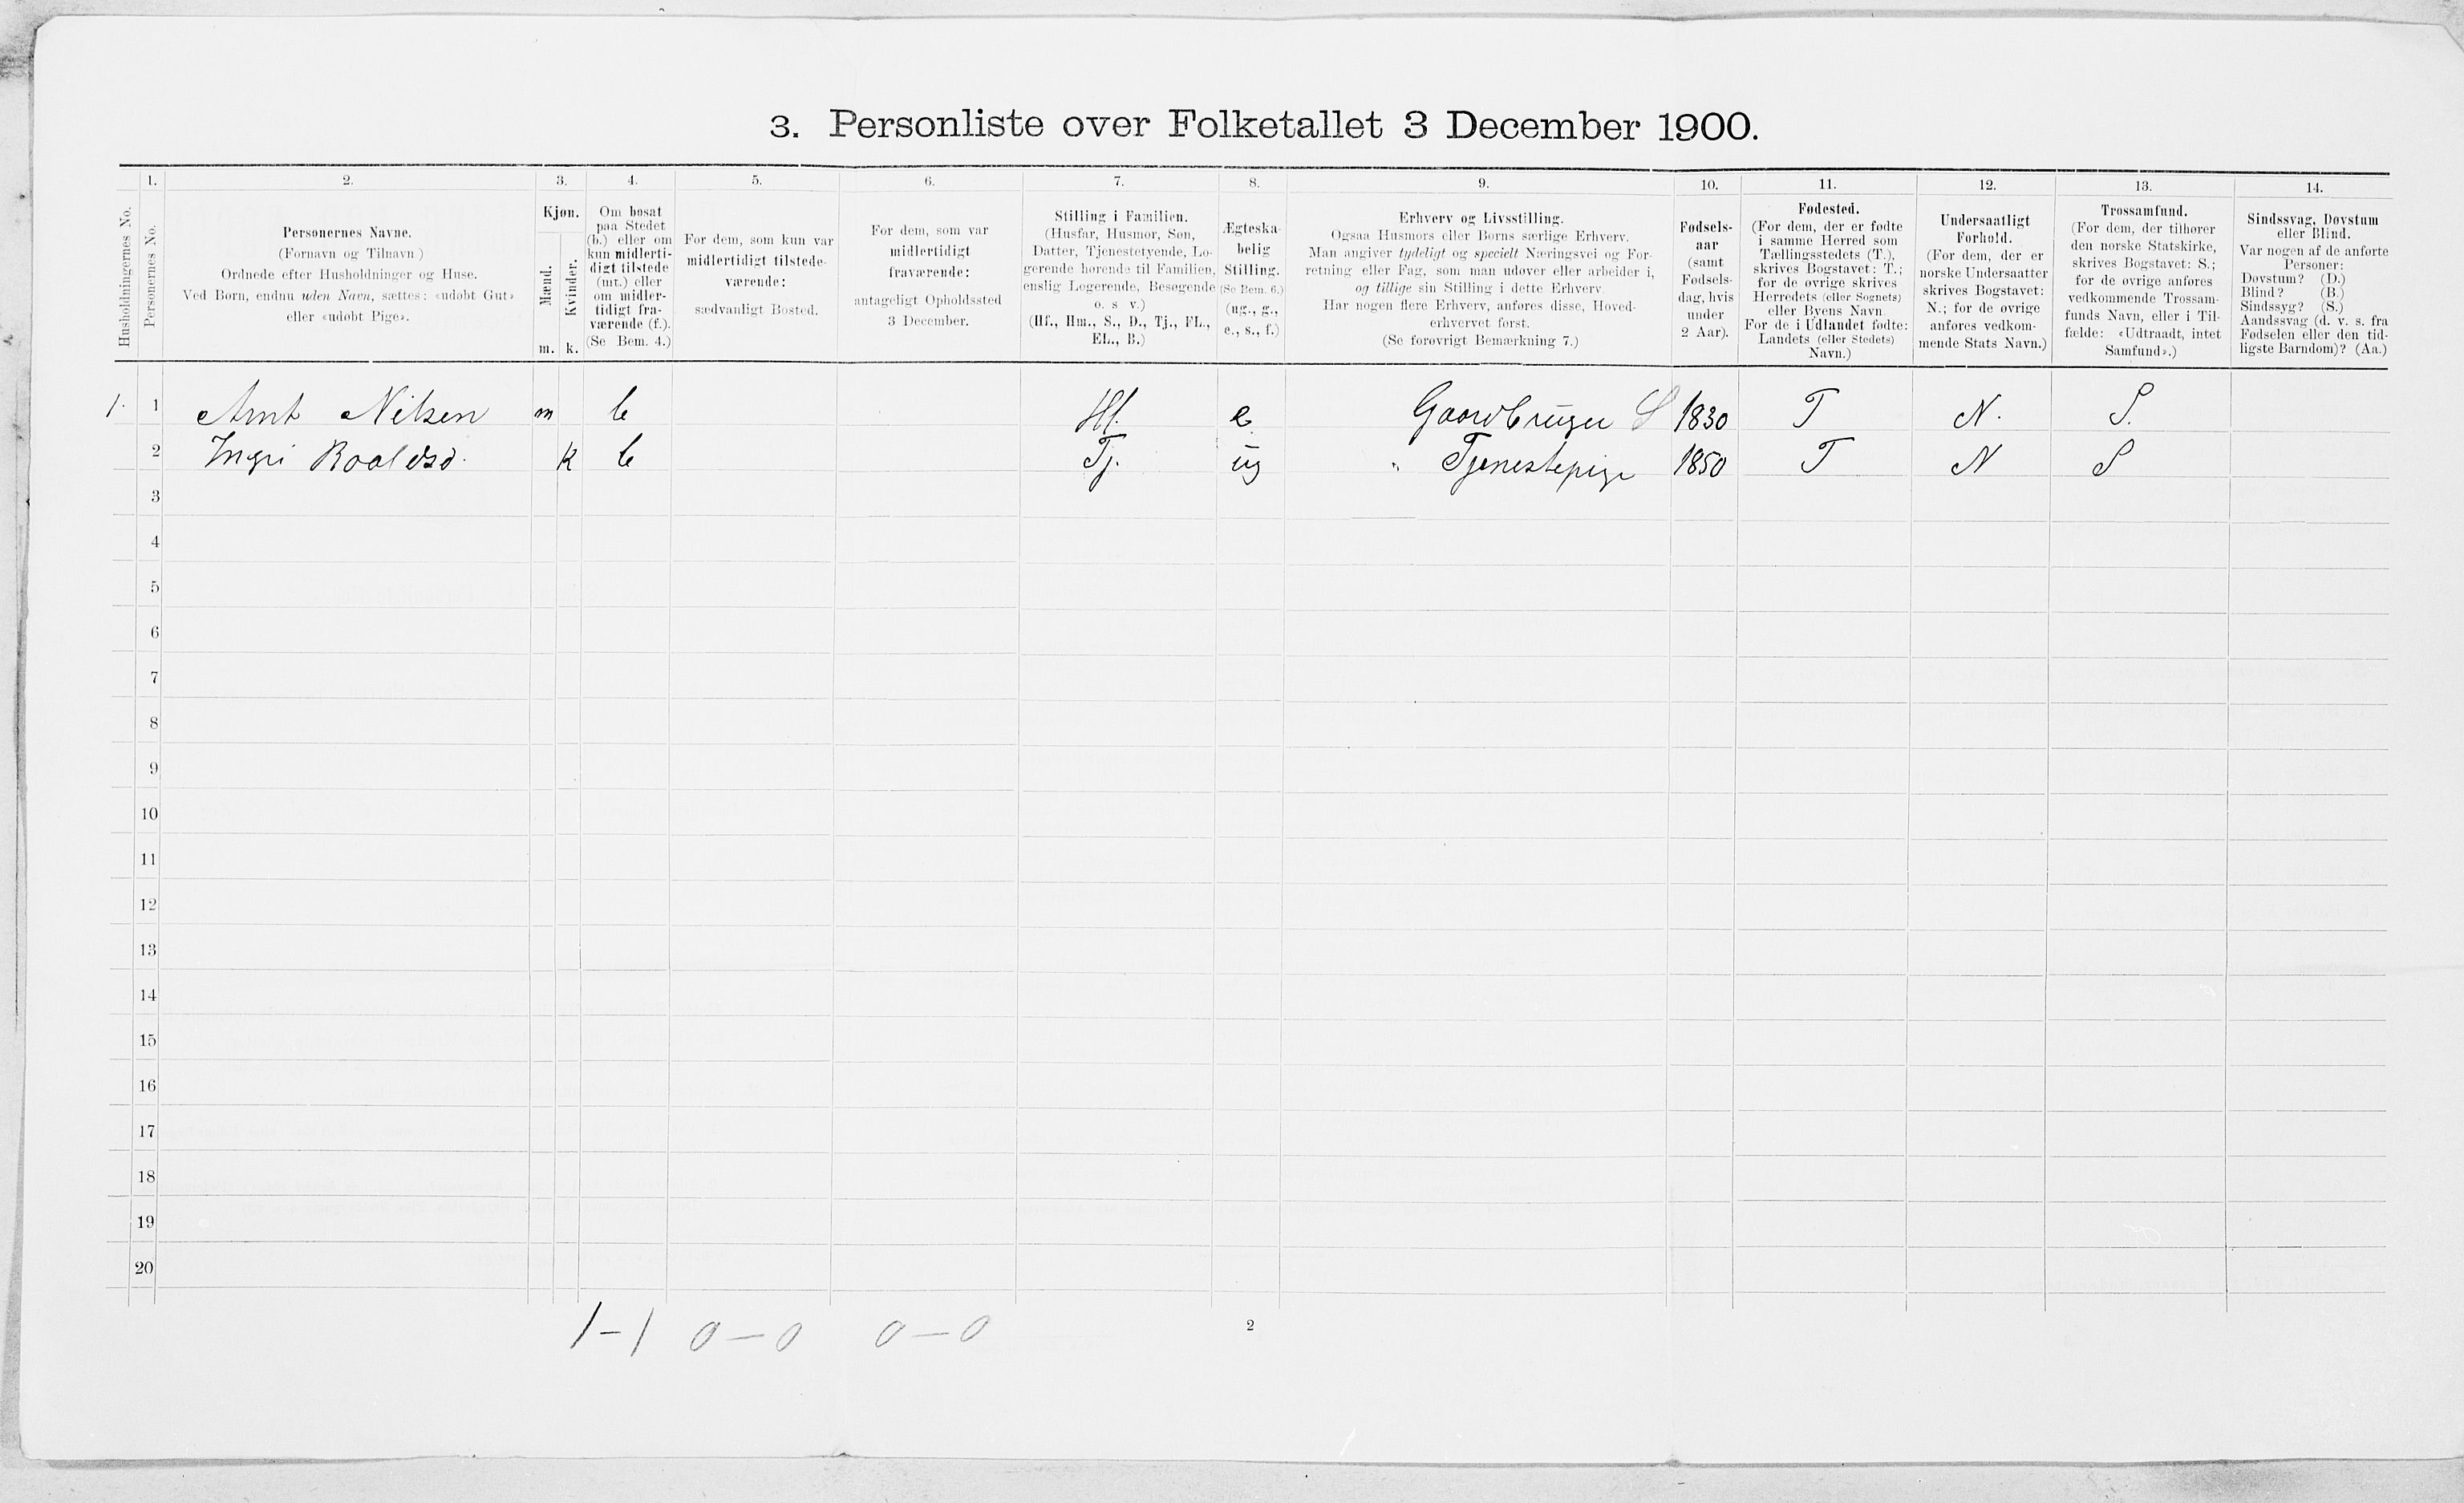 3. Personliste over Folketallet 3 December 1900.
Husholdningernes No.
1.
Personernes No.
2.
Personernes Navne.
(Fornavn og Tilnavn)
Ordnede efter Husholdninger og Huse.
Ved Børn, endnu uden Navn, sættes: «udøbt Gut»
eller «udøbt Pige».
3.
Kjøn.
Mænd.
Kvinder.
m. k.
4.
Om bosat
paa Stedet
(b.) eller om
kun midlerti-
digt tilstede
(mt.) eller
om midler-
tidigt fra-
værende (f.).
(Se Bem. 4.)
5.
For dem, som kun var
midlertidigt tilstede-
værende:
sædvanligt Bosted.
6.
For dem, som var
midlertidigt
fraværende:
antageligt Opholdssted
3 December.
7.
Stilling i Familien.
(Husfar, Husmor, Søn,
Datter, Tjenestetyende, Lo-
gerende hørende til Familien,
enslig Logerende, Besøgende
o. s v.)
(Hf., Hm., S., D., Tj., FL.,
EL., B.)
8.
Ægteska-
belig
Stilling.
(Se Bem. 6.)
(ug., g.,
e., s., f.)
9.
Erhverv og Livsstilling.
Ogsaa Husmors eller Børns særlige Erhverv.
Man angiver tydeligt og specielt Næringsvei og For-
retning eller Fag, som man udøver eller arbeider i,
og tillige sin Stilling i dette Erhverv.
Har nogen flere Erhverv, anføres disse, Hoved-
erhvervet først.
(Se forøvrigt Bemærkning 7.)
10.
Fødsels-
aar
(samt
Fødsels-
dag, hvis
under
2 Aar).
11.
Fødested.
(For dem, der er fødte
i samme Herred som
Tællingsstedets (T.),
skrives Bogstavet: T.;
for de øvrige skrives
Herredets (eller Sognets)
eller Byens Navn.
For de i Udlandet fødte:
Landets (eller Stedets)
Navn.)
12.
Undersaatligt
Forhold.
(For dem, der er
norske Undersaatter
skrives Bogstavet:
N.; for de øvrige
anføres vedkom-
mende Stats Navn.)
13.
Trossamfund.
(For dem, der tilhører
den norske Statskirke,
skrives Bogstavet: S.;
for de øvrige anføres
vedkommende Trossam-
funds Navn, eller i Til-
fælde: «Udtraadt, intet
Samfund».)
14.
Sindssvag, Døvstum
eller Blind.
Var nogen af de anførte
Personer:
Døvstum? (D.)
Blind? (B.)
Sindssyg? (S.)
Aandssvag (d. v. s. fra
Fødselen eller den tid-
ligste Barndom)? (Aa.)
1. 1 Arnt Nilsen m b Hf. e Gaardbruger S 1830 T N. S.
2 Ingri Roaldsd. k b Tj. ug " Tjenestepige 1850 T N S
3
4
5
6
7
8
9
10
11
12
13
14
15
16
17
18
19
20
1-1 0-0 0-0
2